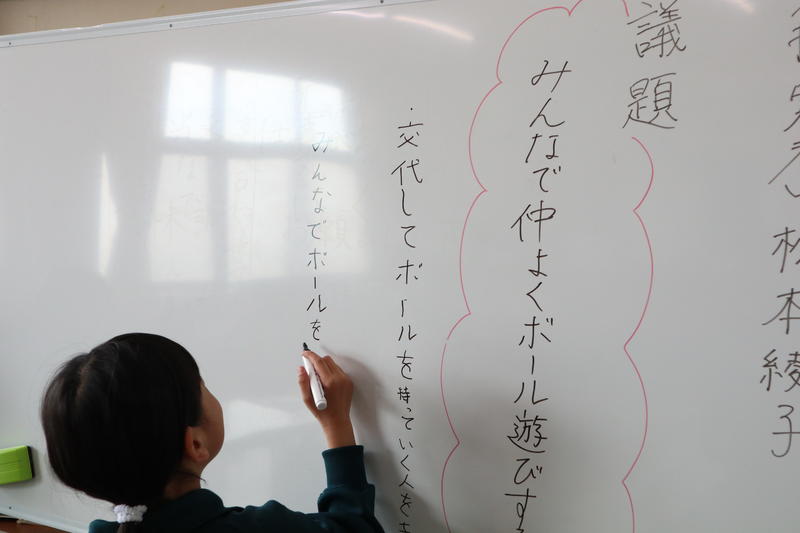 松本綾子
議題
みんなで仲よくボール遊びす
・交代してボールを持っていく人を
みんなでボールを